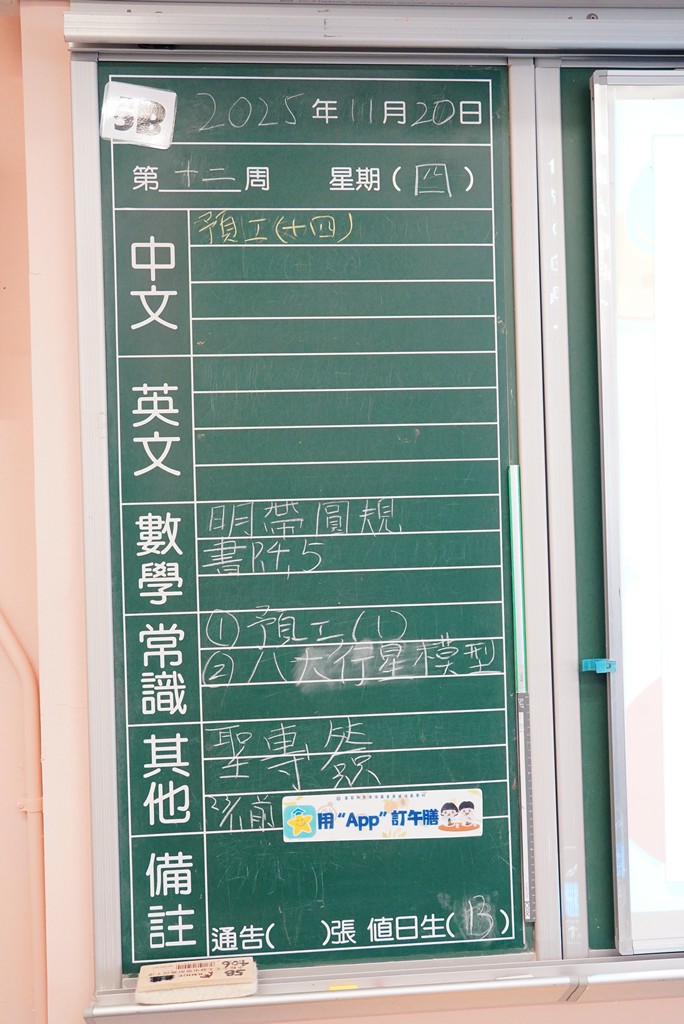 5B
2025年11月20日
第十二周 星期(四)
中文
預工(十四)
英文
數學
明帶圓規
書P.4,5
常識
① 預工(1)
② 八大行星模型
其他
聖專
前
用“App”訂午膳
備註
通告( )張 值日生(B)
5B